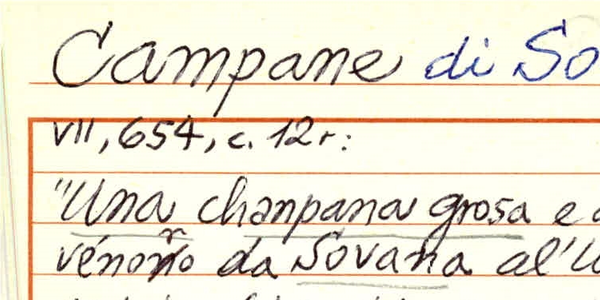 Campane di So
VII, 654, c. 12r:
"Una chanpana grosa e
da Sovana al'